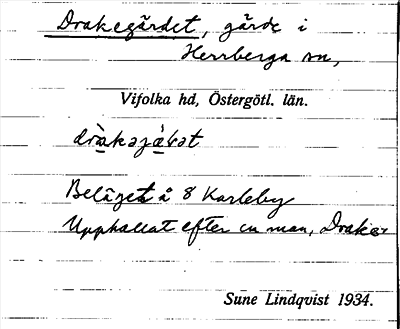 Drakegärdet, gärde i
Herrberga sn,
Vifolka hd, Östergötl. län.
Beläget å 8 Karleby
Uppkallat efter en man, Drake
Sune Lindqvist 1934.